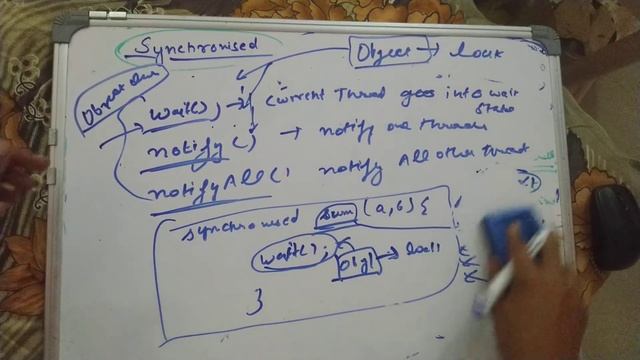 Synchronised
Object → lock
Object class
wait(); → Current Thread goes into wait
State
notify() → notify one thread
notifyAll() notify All other thread
synchronised sum (a,b) {
wait(); obj1 →
}